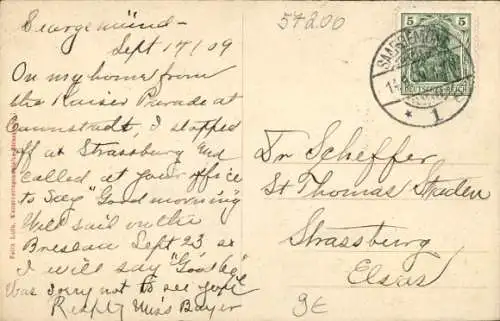 57200
Saargemünd -
Sept 17/09
On my home from
the Kaiser Parade at
Cannstadt, I stopped
off at Strassburg and
called at your office
to say "Good morning"
Will sail on the
Breslau Sept 23 so
I will say "Good bye"
Was sorry not to see you
Respty Miss Bayer
5 5
DEUTSCHES REICH
SAARGEMÜND
* 1
Dr Scheffer
St Thomas Staden
Strassburg
Elsas
9E
Felix Luib, Kunstverlagsanstalt, Strassburg